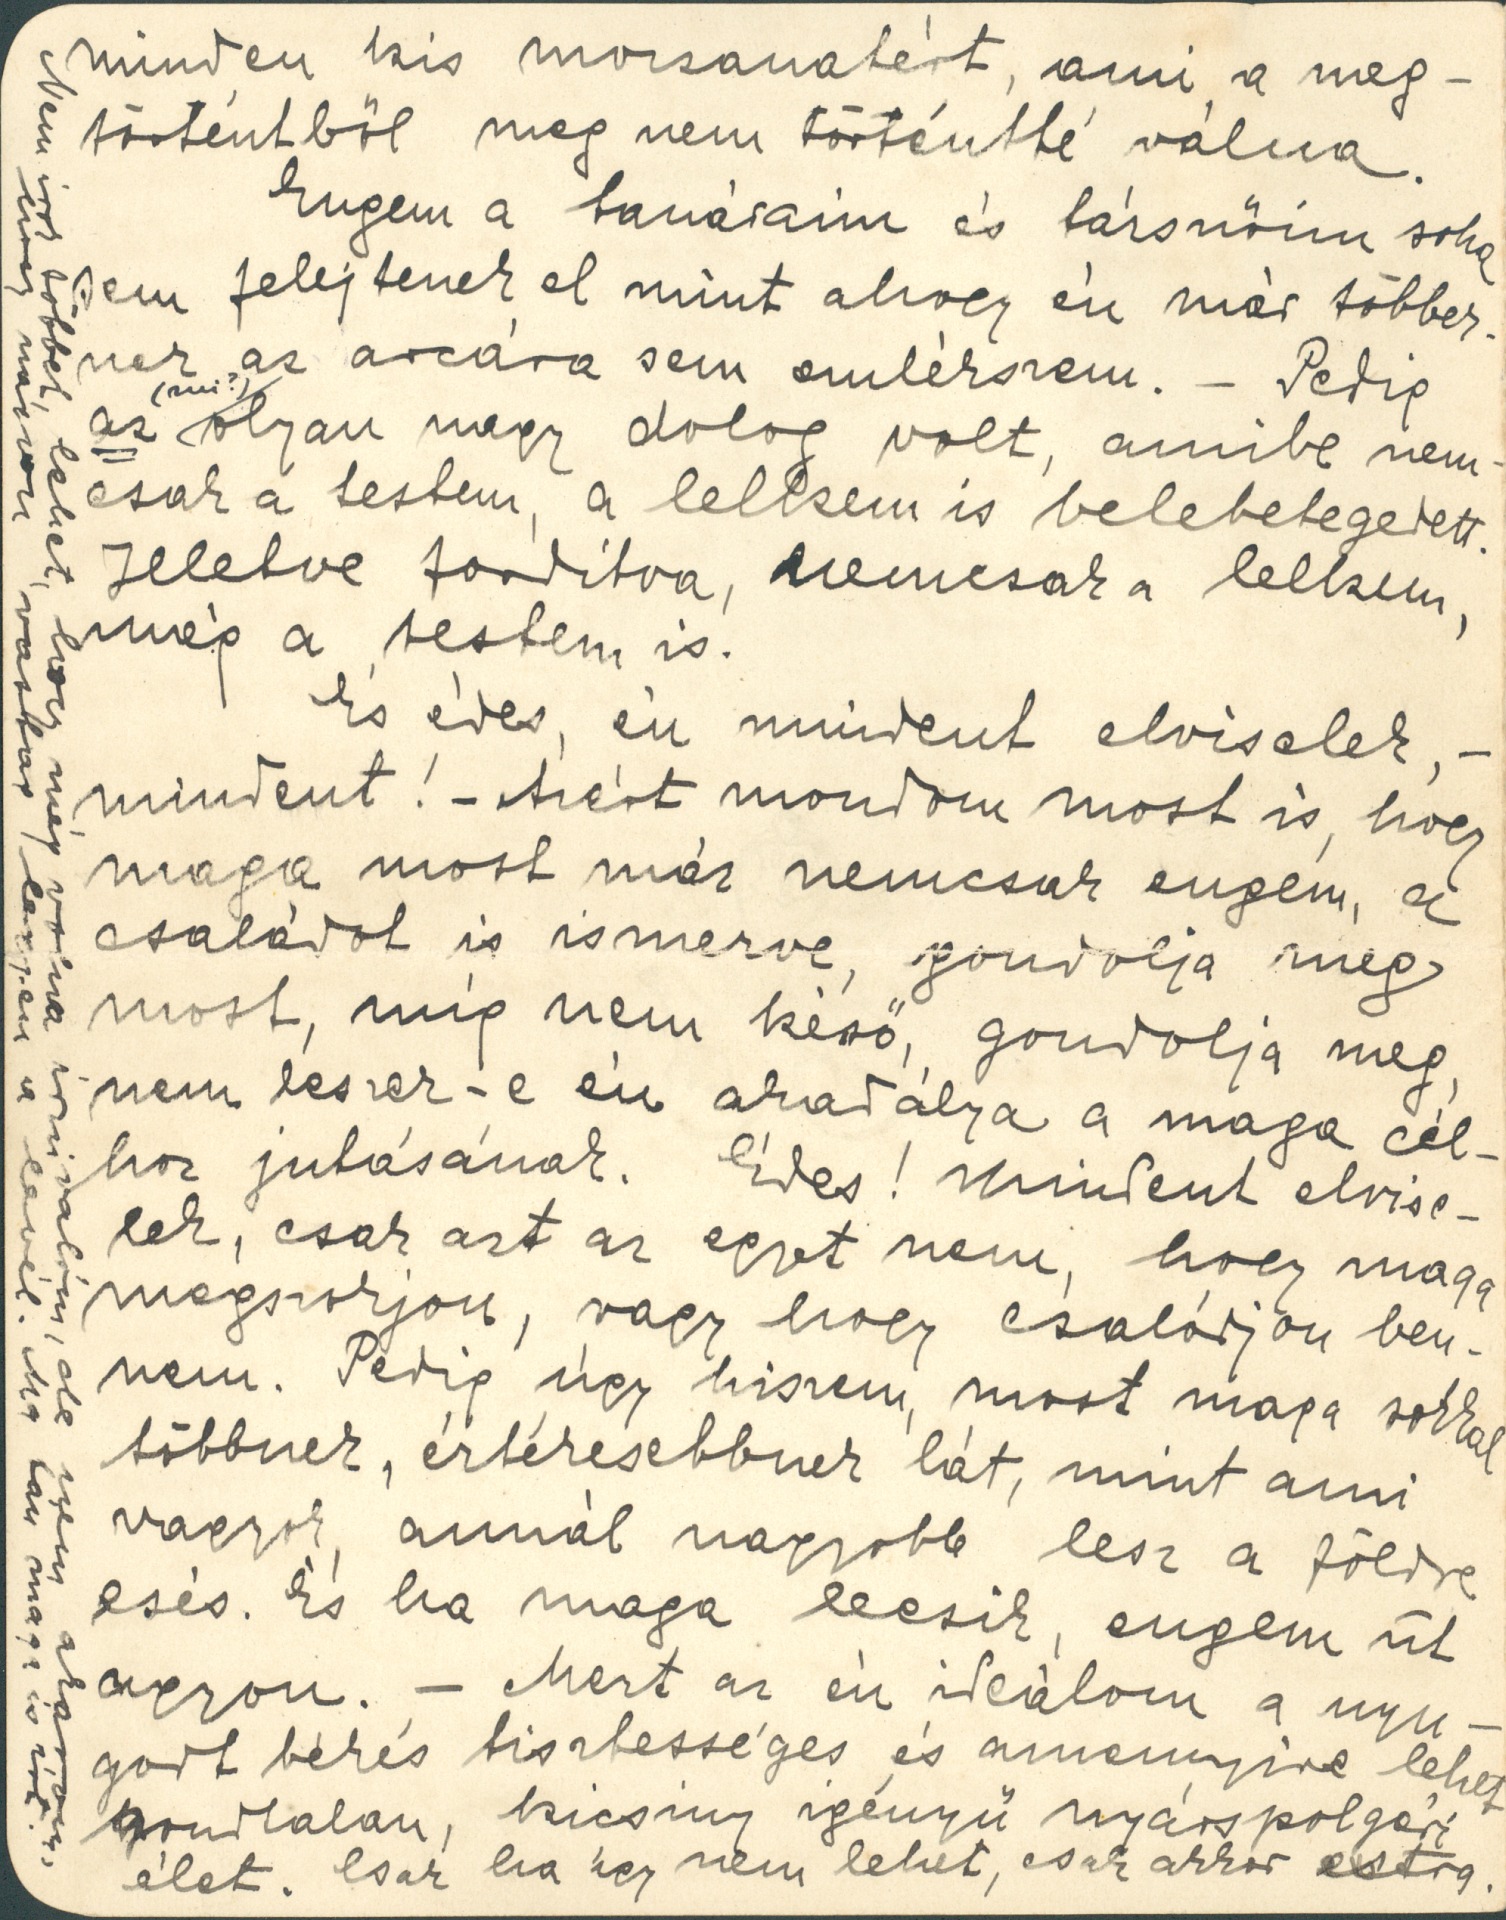 minden kis mozzanatért, ami a meg-
történtből meg nem történtté válna.
Engem a tanáraim és társnőim soha
sem felejtenek el mint ahogy én már többek-
nek az arcára sem emlékszem. — Pedig
az (mi?) olyan nagy dolog volt, amibe nem-
csak a testem, a lelkem is belebetegedett.
Illetve fordítva, nemcsak a lelkem,
még a testem is.
És édes, én mindent elviselek, —
mindent! — Azért mondom most is, hogy
maga most már nemcsak engem, a
családot is ismerve, gondolja meg
most, míg nem késő, gondolja meg,
nem leszek-e én akadálya a maga cél-
hoz jutásának. Édes! Mindent elvise-
lek, csak azt az egyet nem, hogy maga
megszokjon, vagy hogy csalódjon ben-
nem. Pedig úgy hiszem, most maga sokkal
többnek, értékesebbnek lát, mint ami
vagyok, annál nagyobb lesz a földre
esés. És ha maga leesik, engem üt
agyon. — Mert az én ideálom a nyu-
godt békés tisztességes és amennyire lehet
gondtalan, kicsiny igényű nyárspolgári
élet. Csak ha így nem lehet, csak akkor
Nem írok többet, lehet, hogy még volna írnivalóm, de nem akarom,
hogy nagyon vastag legyen a levél. Ma tán maga is írt.